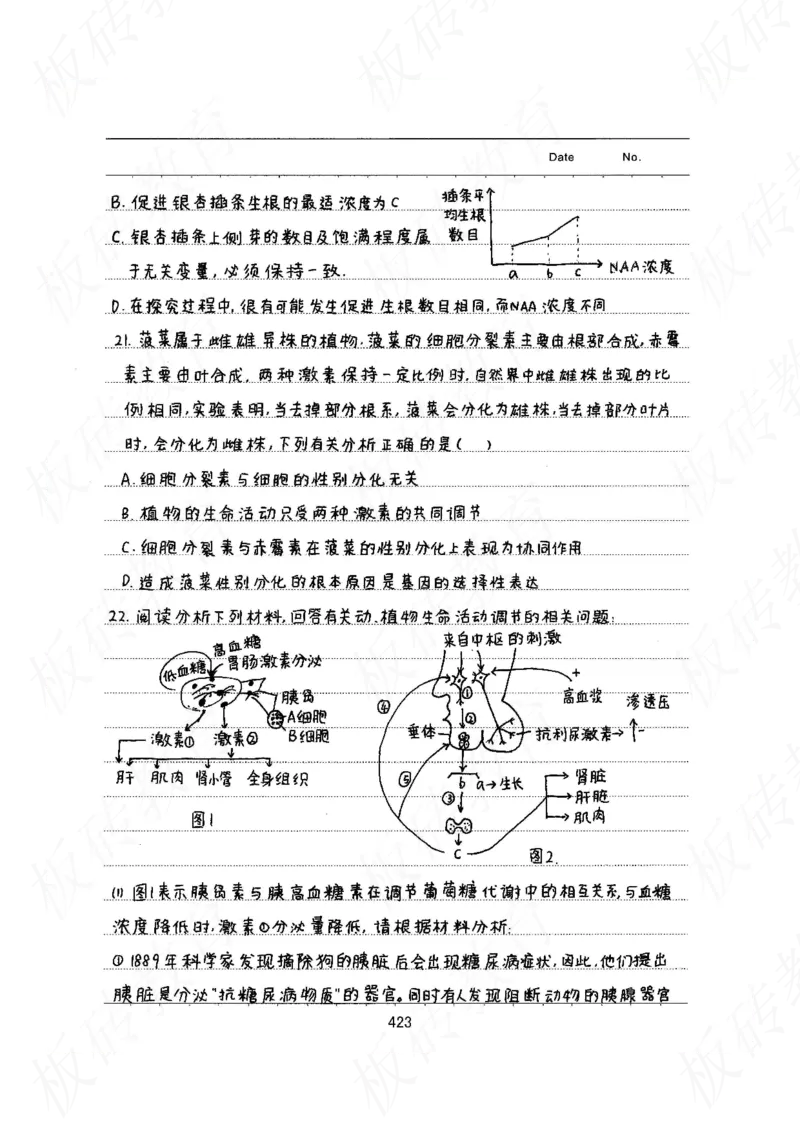 Date No.
B. 促进银杏插条生根的最适浓度为C
C. 银杏插条上侧芽的数目及饱满程度属
于无关变量,必须保持一致.
插条平
均生根
数目
a b c NAA浓度
D. 在探究过程中,很有可能发生促进生根数目相同,而NAA浓度不同
21. 菠菜属于雌雄异株的植物.菠菜的细胞分裂素主要由根部合成,赤霉
素主要由叶合成, 两种激素保持一定比例时,自然界中雌雄株出现的比
例相同,实验表明,当去掉部分根系,菠菜会分化为雄株,当去掉部分叶片
时,会分化为雌株,下列有关分析正确的是( )
A. 细胞分裂素与细胞的性别分化无关
B. 植物的生命活动只受两种激素的共同调节
C. 细胞分裂素与赤霉素在菠菜的性别分化上表现为协同作用
D. 造成菠菜性别分化的根本原因是基因的选择性表达
22. 阅读分析下列材料,回答有关动.植物生命活动调节的相关问题:
高血糖
低血糖 胃肠激素分泌
胰岛
A细胞
B细胞
激素① 激素②
肝 肌肉 肾小管 全身组织
图1
来自中枢的刺激
+
高血浆 渗透压
①
②
④
垂体
抗利尿激素→
⑤
b a→生长
③
肾脏
肝脏
肌肉
C
图2.
(1) 图1表示胰岛素与胰高血糖素在调节葡萄糖代谢中的相互关系,与血糖
浓度降低时,激素①分泌量降低, 请根据材料分析:
① 1889年科学家发现摘除狗的胰脏后会出现糖尿病症状,因此,他们提出
胰脏是分泌"抗糖尿病物质"的器官。同时有人发现阻断动物的胰腺器官
423
板砖教育